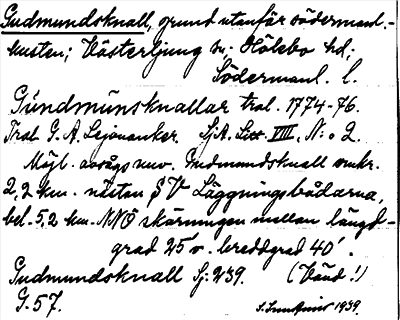 Gudmundsknall, grund utanför södermanl.-
kusten; Västerljung sn; Hölebo hd;
Södermanl. l.
Gúndmúnsknallar trol. 1774-76.
Trol. G. A. Lejonanker. SjA. Litt VIII, N:o 2.
Möjl. avsågs nuv. Gudmundsknall omkr.
2,2 km. nästan S V Läggningsbådarna,
bel. 5,2 km. NNÖ skärningen mellan längd-
grad 25 o. breddgrad 40'.
Gudmundsknall Sj: 239. (Vänd!)
G. 57. 1939.